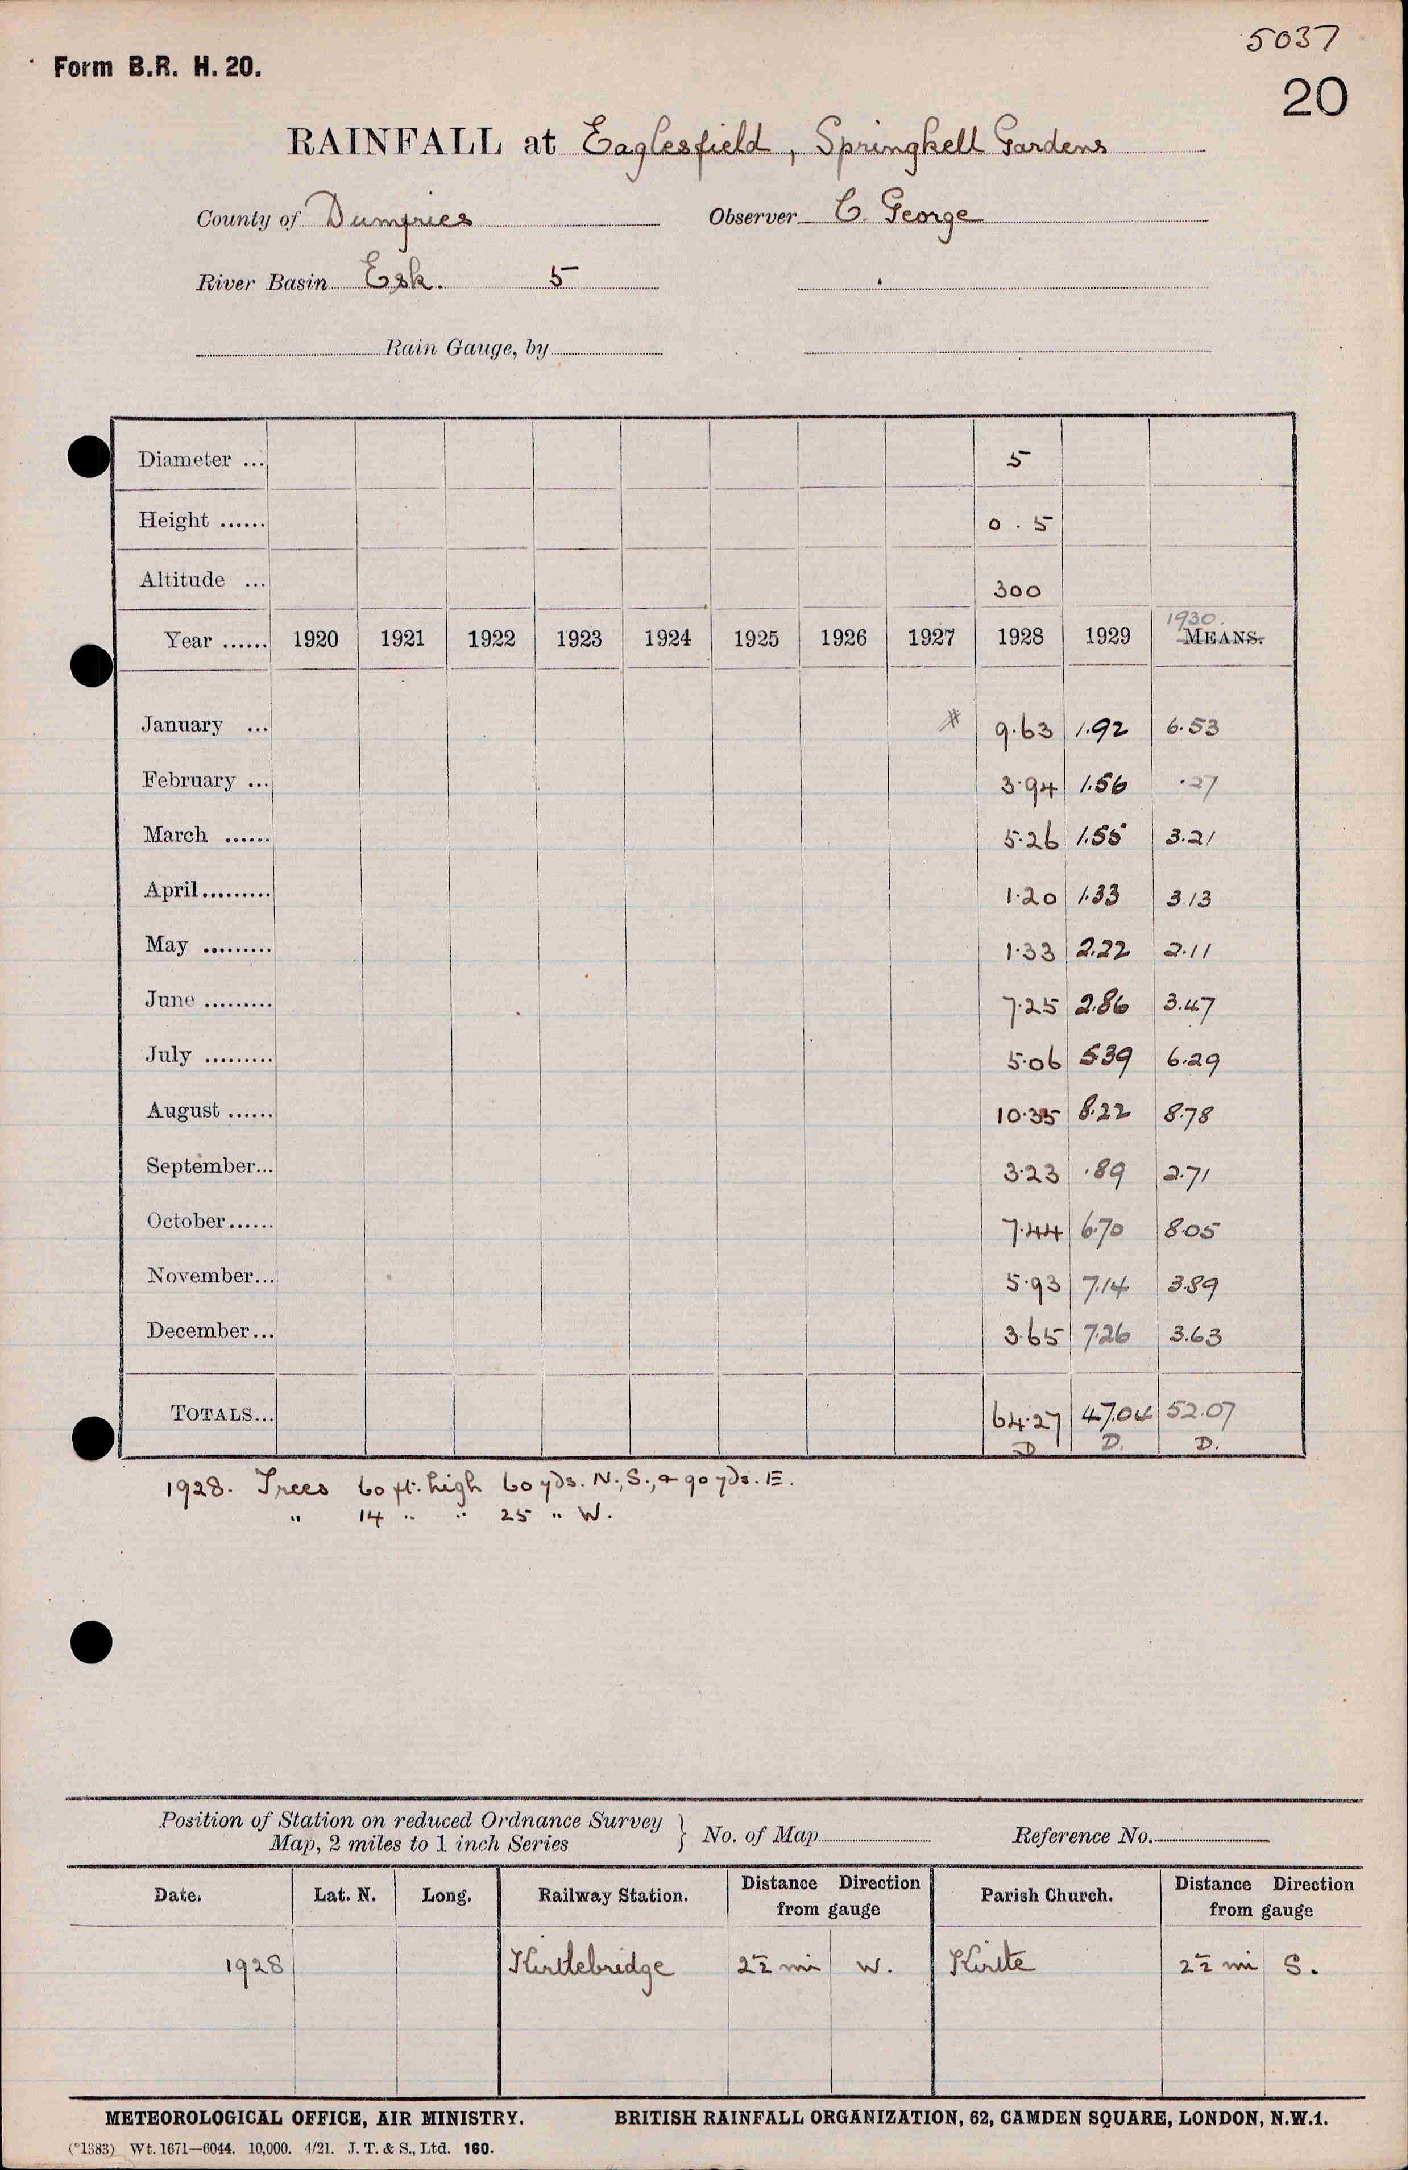 5037
Form B.R. H. 20.
20
RAINFALL at Eaglesfield, Springkell Gardens
County of Dumfries Observer C. George
River Basin Esk. 5
Rain Gauge, by
Diameter ... 5
Height ...... 0.5
Altitude ... 300
1930.
Year ...... 1920 1921 1922 1923 1924 1925 1926 1927 1928 1929 MEANS.
January ... 9.63 1.92 6.53
February ... 3.94 1.56 .27
March ...... 5.26 1.55 3.21
April......... 1.20 1.33 3.13
May ......... 1.33 2.22 2.11
June ......... 7.25 2.86 3.47
July ......... 5.06 5.39 6.29
August ...... 10.35 8.22 8.78
September... 3.23 .89 2.71
October...... 7.44 6.70 8.05
November... 5.93 7.14 3.89
December... 3.65 7.26 3.63
TOTALS... 64.27 47.04 52.07
D D. D.
1928. Trees 60 ft. high 60 yds. N., S., & 90 yds. E.
" 14 " " 25 " W.
Position of Station on reduced Ordnance Survey
Map, 2 miles to 1 inch Series } No. of Map Reference No.
Date. Lat. N. Long. Railway Station. Distance Direction from gauge Parish Church. Distance Direction from gauge
1928 Kirtlebridge 2½ mi W. Kirtle 2½ mi S.
METEOROLOGICAL OFFICE, AIR MINISTRY. BRITISH RAINFALL ORGANIZATION, 62, CAMDEN SQUARE, LONDON, N.W.1.
(*1383) Wt. 1671—6044. 10,000. 4/21. J. T. & S., Ltd. 160.